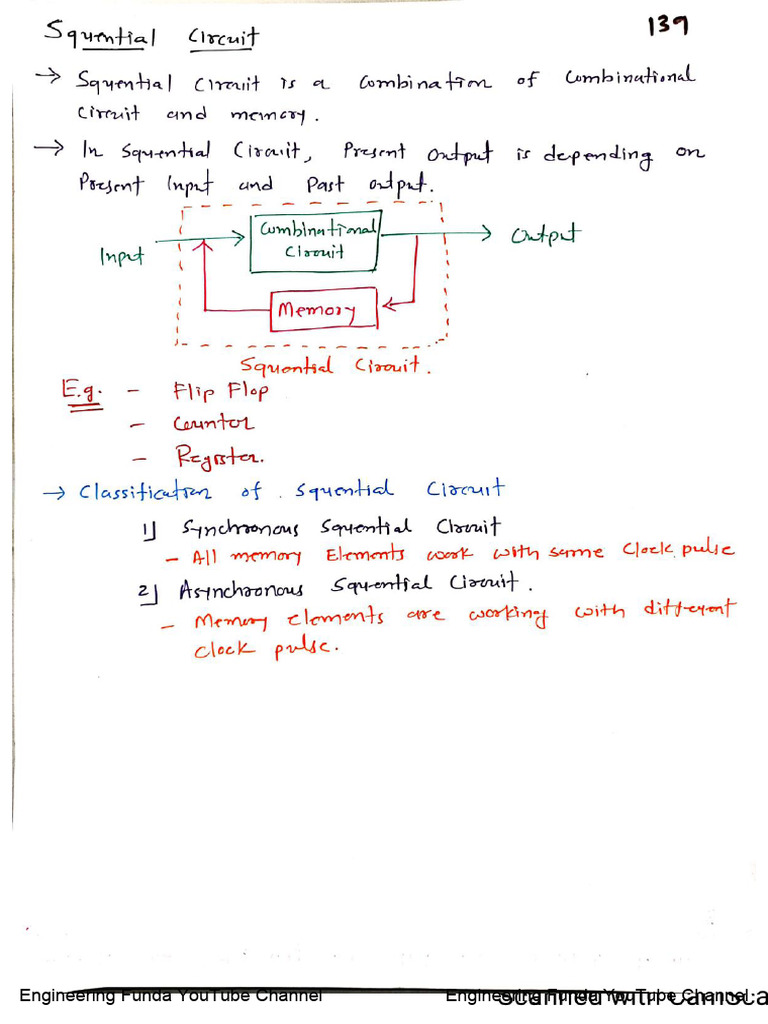 Squential Circuit
139
→ Squential Circuit is a Combination of Combinational
Circuit and memory.
→ In Squential Circuit, Present Output is depending on
Present Input and Past output.
Combinational
Circuit
Input
Output
Memory
Squential Circuit.
E.g. - Flip Flop
- Counter
- Register.
→ Classification of Squential Circuit
1) Synchronous Squential Circuit
- All memory Elements work with same Clock pulse
2) Asynchronous Squential Circuit.
- Memory elements are working with different
Clock pulse.
Engineering Funda YouTube Channel
Engineering Funda YouTube Channel
Scanned with CamSca